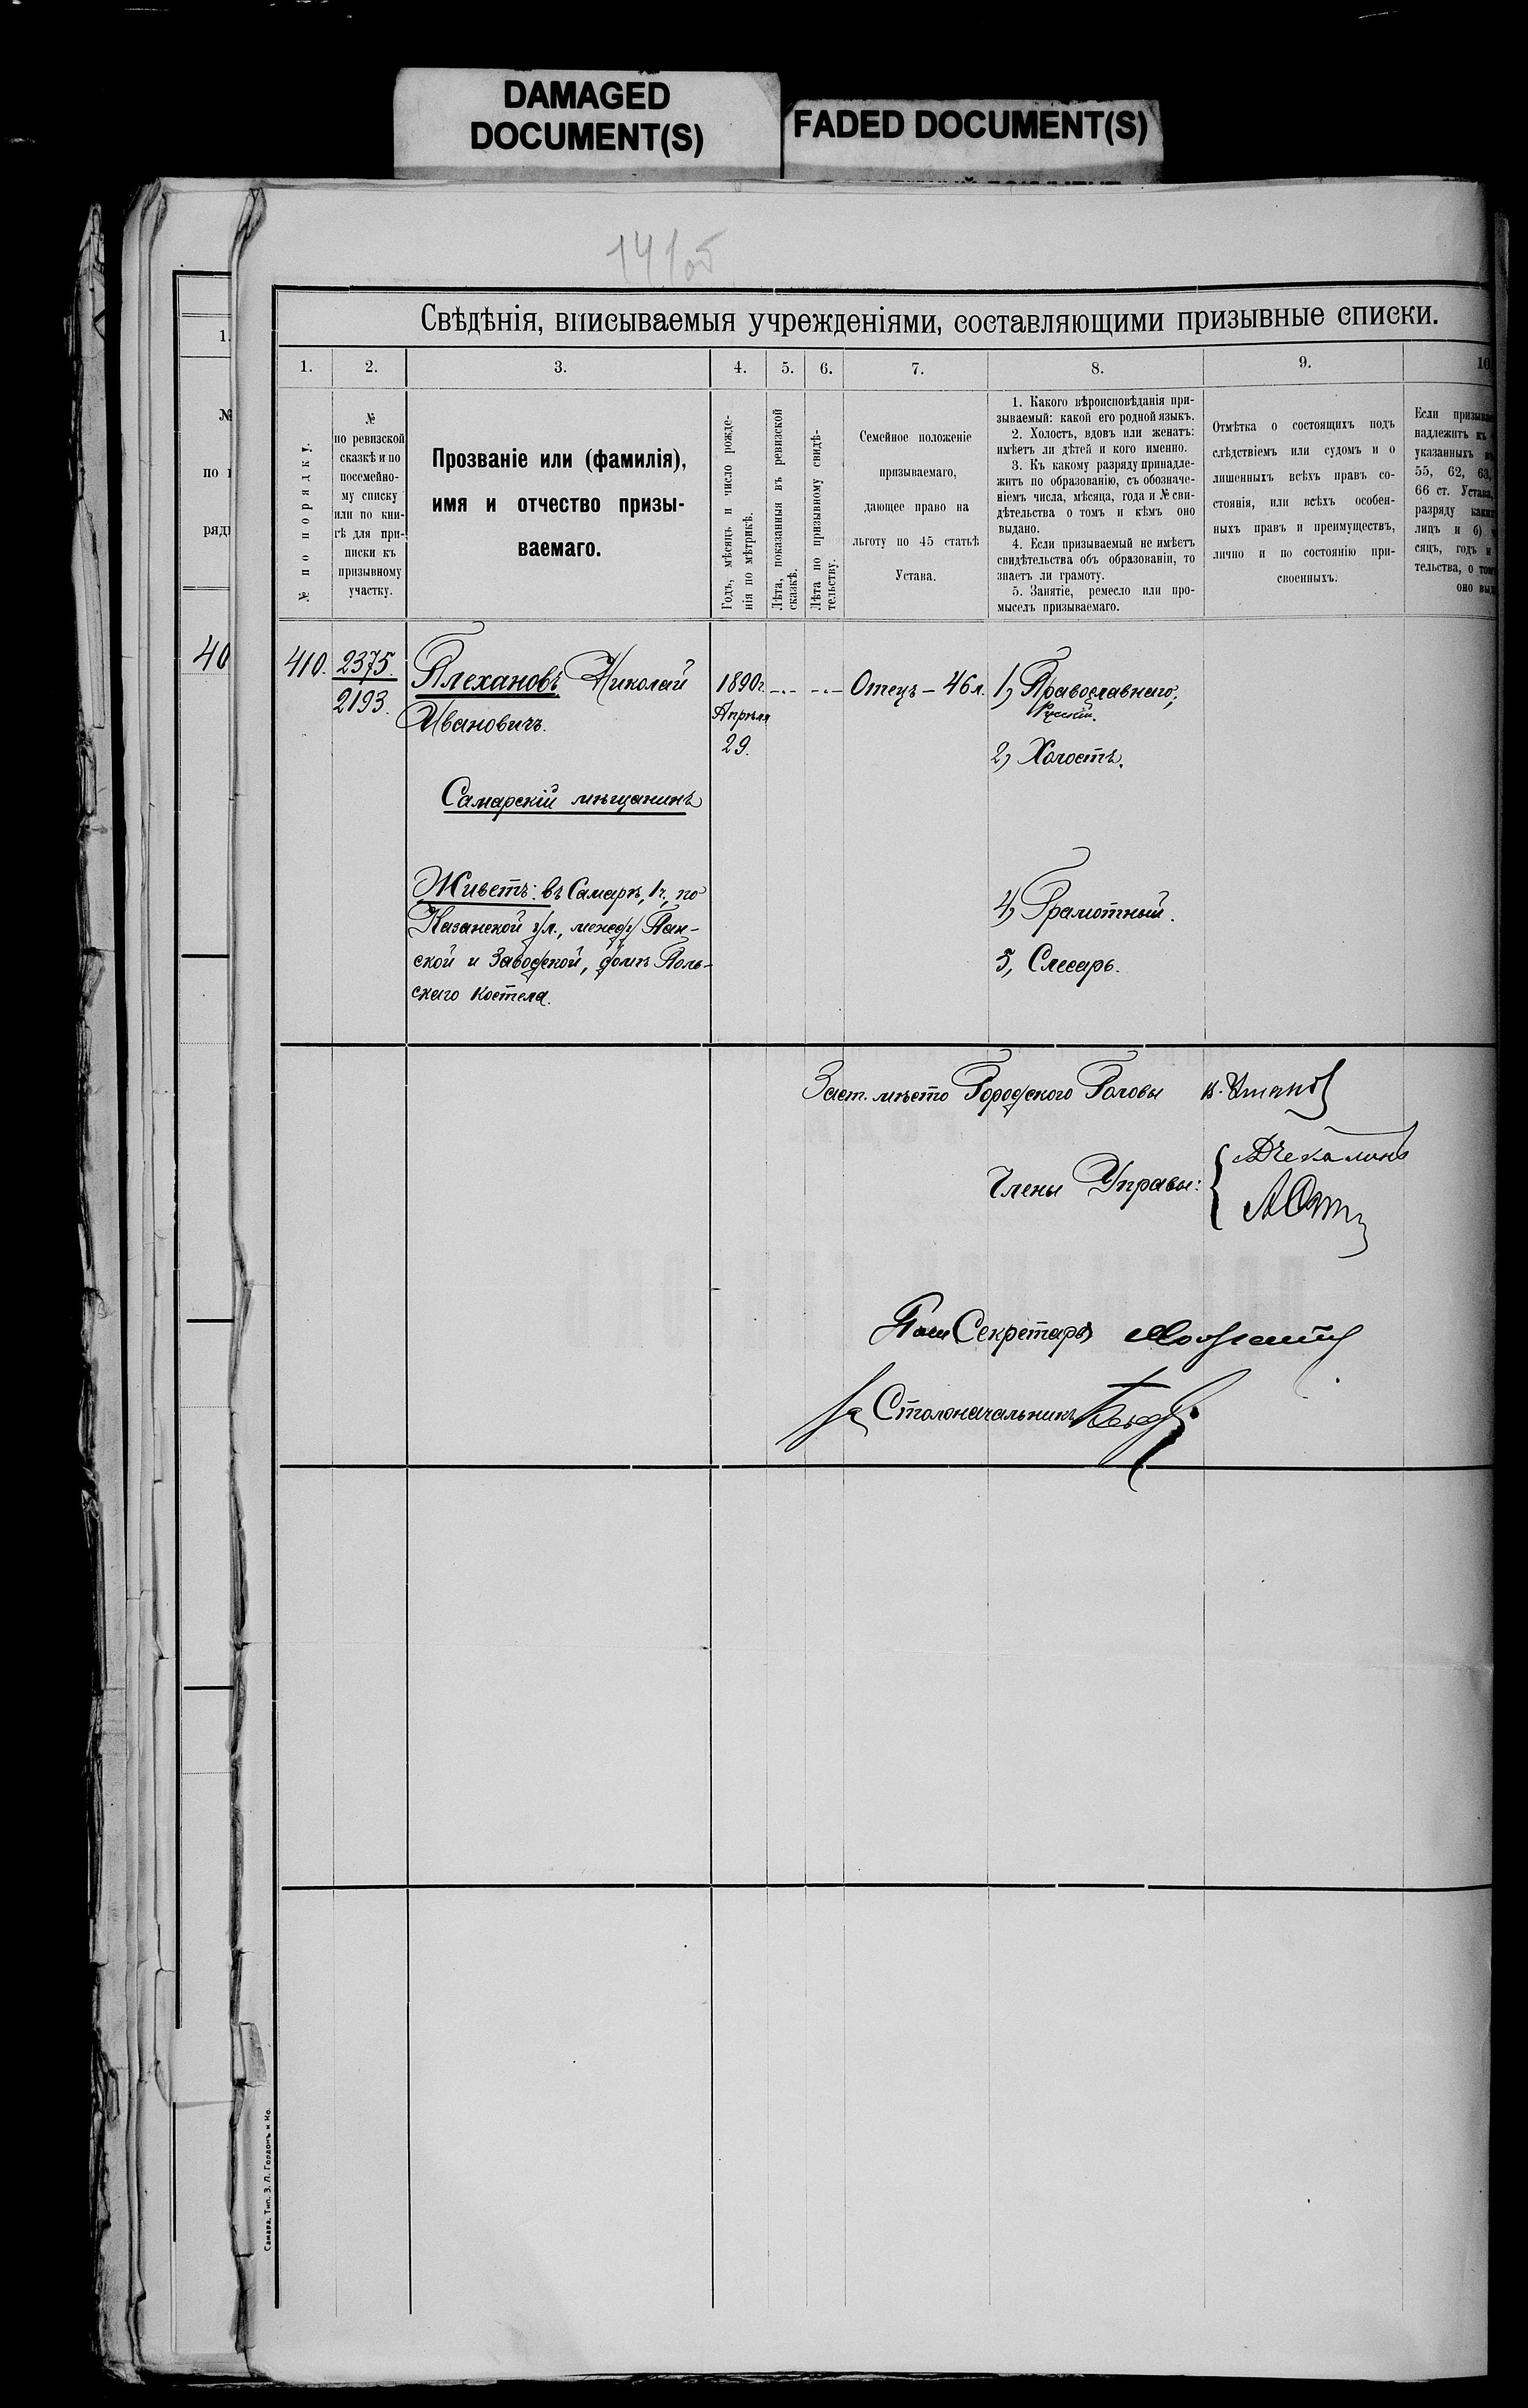 DAMAGED
DOCUMENT(S)
FADED DOCUMENT(S)
141об
Свѣдѣнія, вписываемыя учрежденіями, составляющими призывные списки.
1.
№
40
1.
2.
3.
4.
5.
6.
7.
8.
9.
10
№ по порядку.
№
по ревизской
сказкѣ и по
посемейно-
му списку
или по кни-
гѣ для при-
писки къ
призывному
участку.
Прозваніе или (фамилія),
имя и отчество призы-
ваемаго.
Годъ, мѣсяцъ и число рожде-
нія по метрикѣ.
Лѣта, показанныя въ ревизской
сказкѣ.
Лѣта по призывному свидѣ-
тельству.
Семейное положеніе
призываемаго,
дающее право на
льготу по 45 статьѣ
Устава.
1. Какого вѣроисповѣданія при-
зываемый: какой его родной языкъ.
2. Холостъ, вдовъ или женатъ:
имѣетъ ли дѣтей и кого именно.
3. Къ какому разряду принадле-
житъ по образованію, съ обозначе-
ніемъ числа, мѣсяца, года и № сви-
дѣтельства о томъ и кѣмъ оно
выдано.
4. Если призываемый не имѣетъ
свидѣтельства объ образованіи, то
знаетъ ли грамоту.
5. Занятіе, ремесло или про-
мыселъ призываемаго.
Отмѣтка о состоящихъ подъ
слѣдствіемъ или судомъ и о
лишенныхъ всѣхъ правъ со-
стоянія, или всѣхъ особен-
ныхъ правъ и преимуществъ,
лично и по состоянію при-
своенныхъ.
Если призывае
надлежитъ къ
указанныхъ въ
55, 62, 63,
66 ст. Устава,
разряду каких
лицъ и б)
сяцъ, годъ и
тельства, о том
оно выд
410.
2375.
2193.
Плехановъ Николай
Ивановичъ.
Самарскій мѣщанинъ
Живетъ: въ Самарѣ, 1ч., по
Казанской ул., между Пан-
ской и Заводской, домъ Поль-
скаго Костела.
1890г.
Апрѣля
29.
Отецъ – 46 л.
1, Православнаго,
Русскій.
2, Холостъ.
4, Грамотный.
5, Слесарь.
Заст. мѣсто Городского Головы
Члены Управы:
АЧекалинъ
Пом Секретаря
За Столоначальникъ
Самара, Тип. З. Л. Гордонъ и Ко.